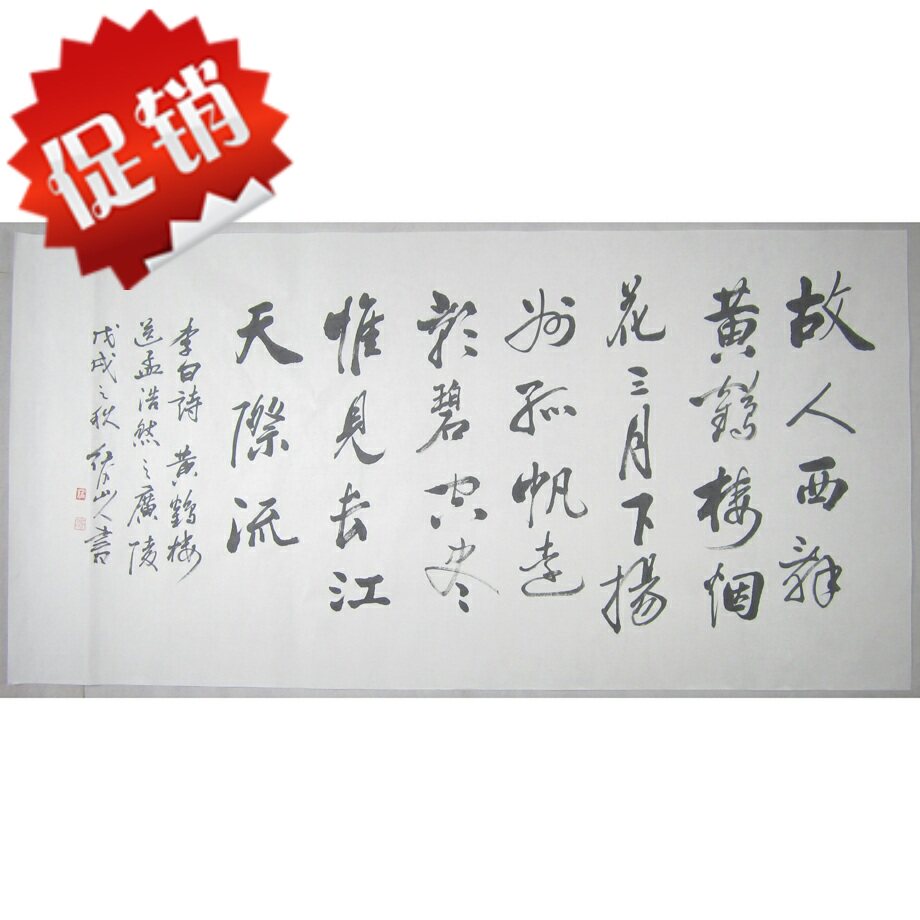 促销
故人西辞
黄鹤楼烟
花三月下揚
州孤帆遠
影碧空尽
惟見长江
天際流
李白詩 黄鹤楼
送孟浩然之廣陵
戊戌之秋 山人書